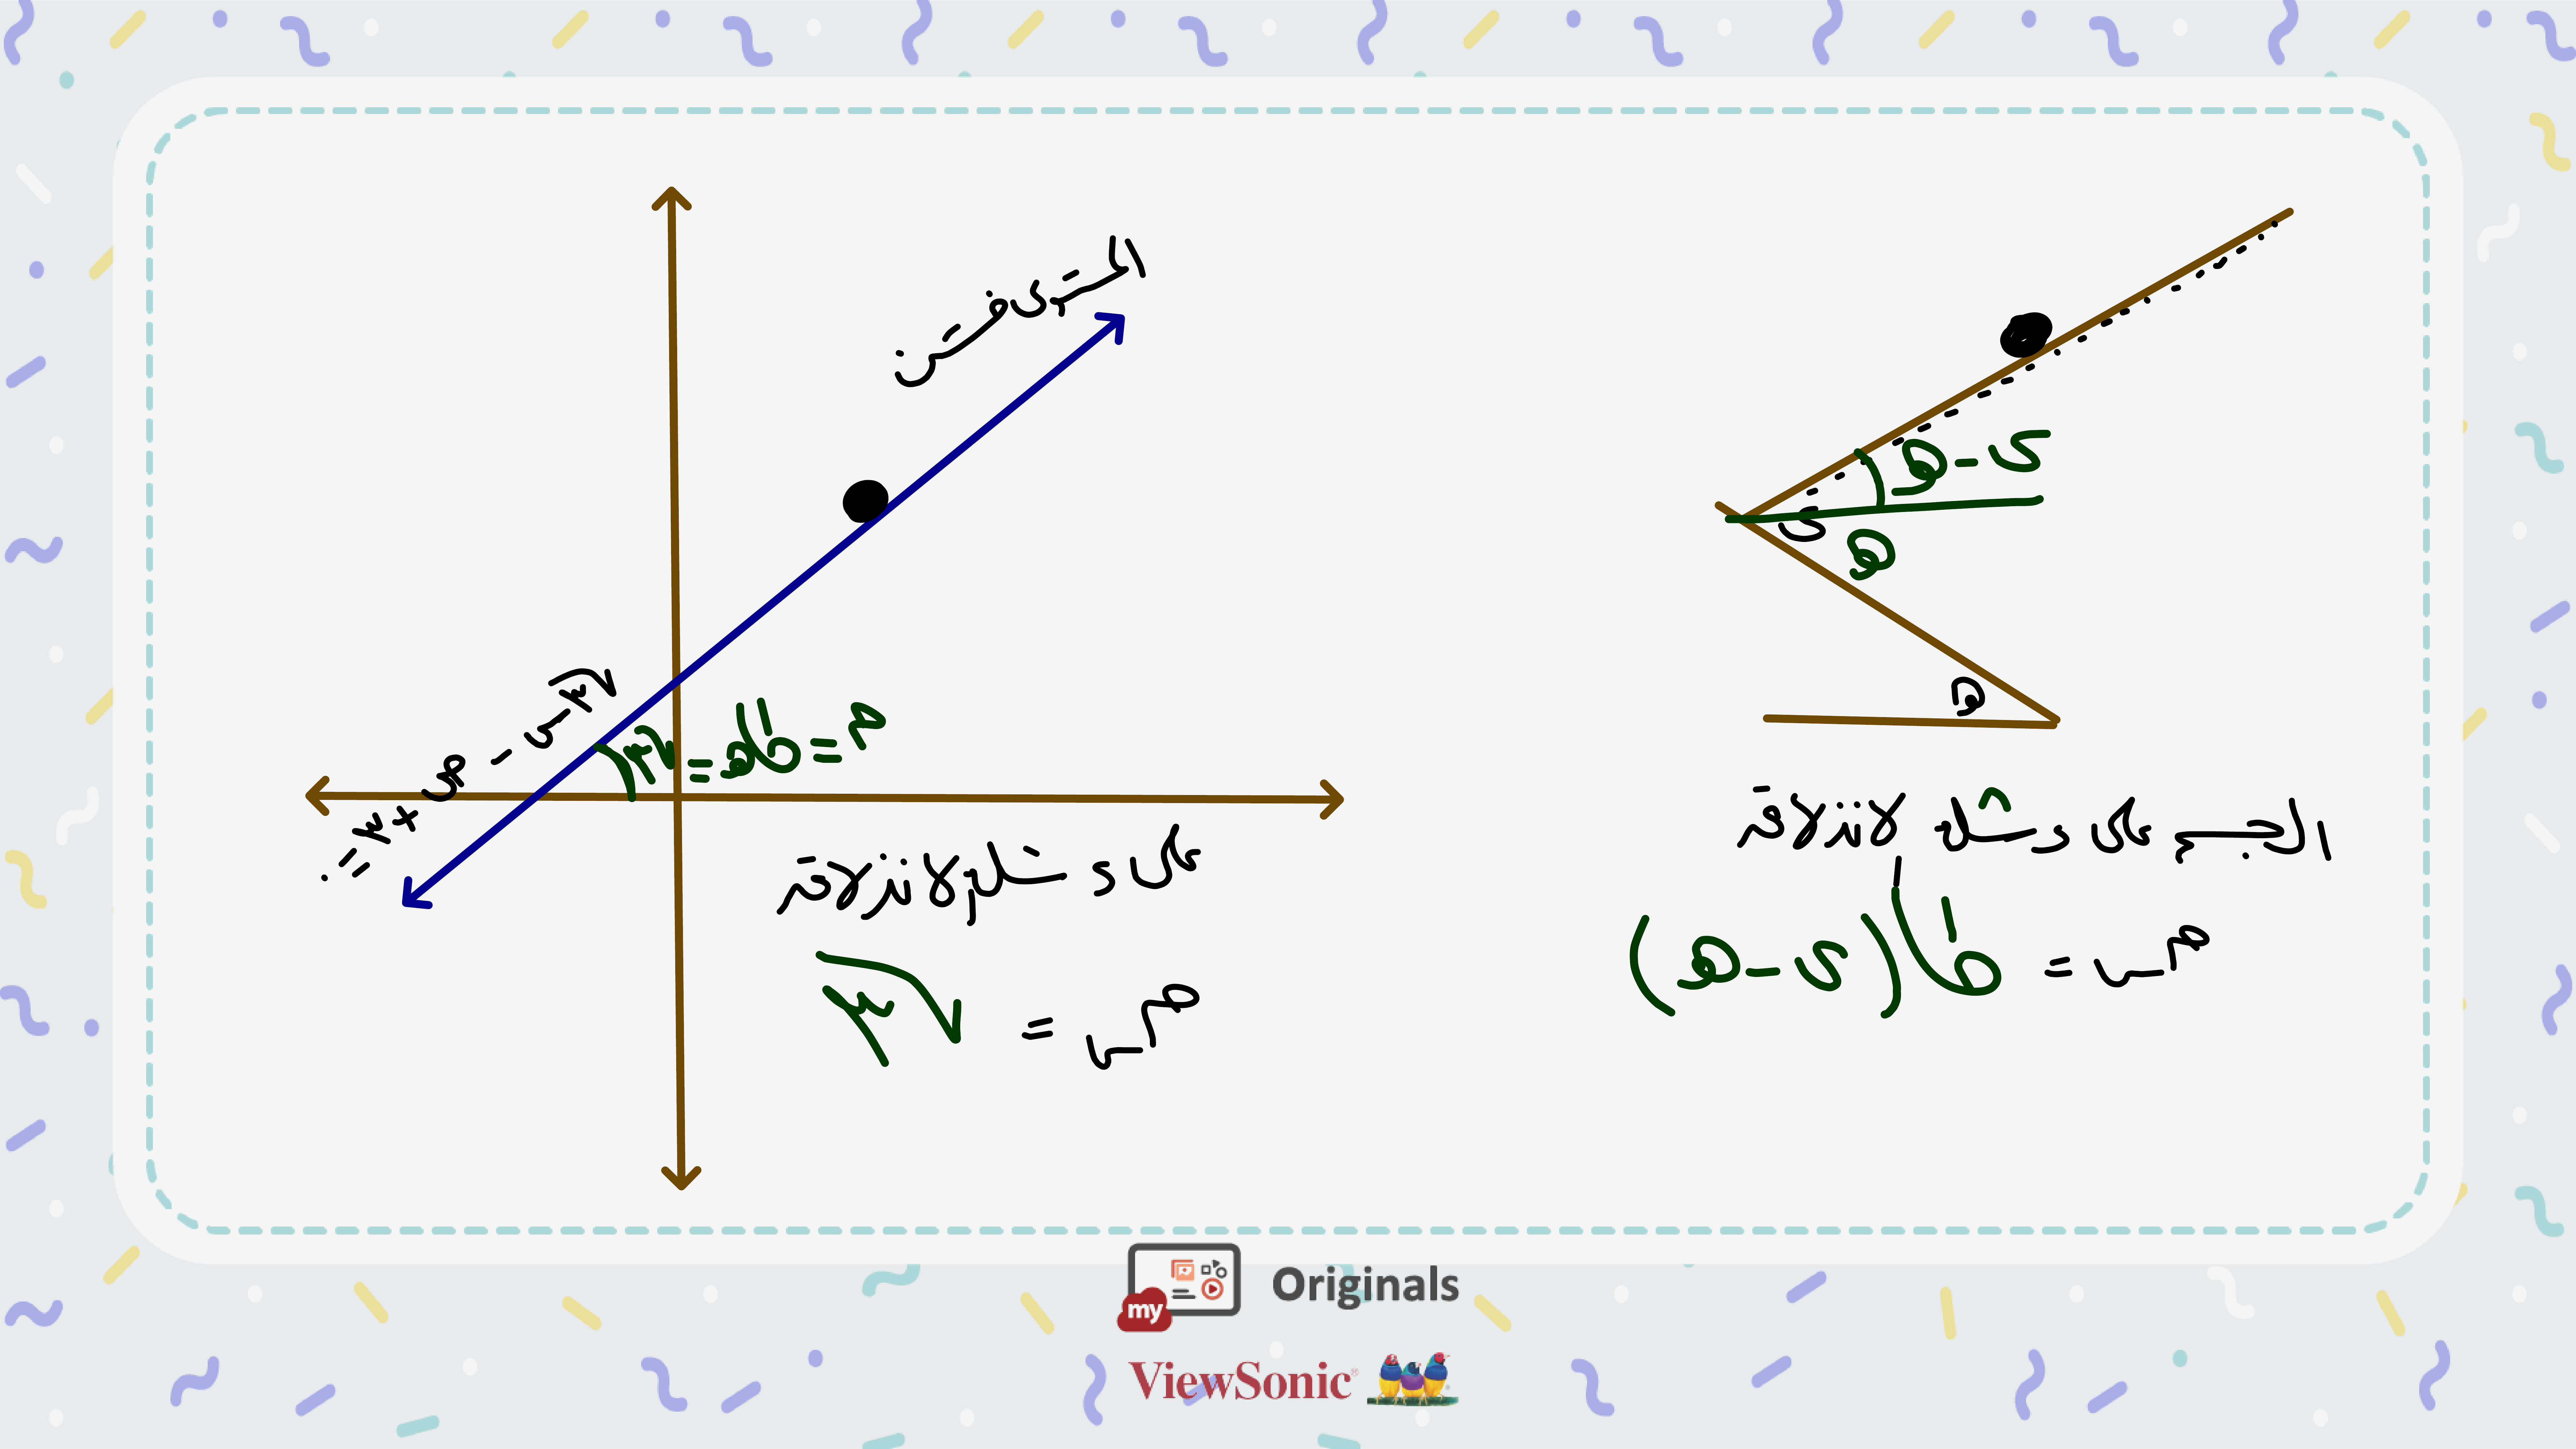 المستوى خشن
√٣ س - ص + ٣ = ٠
م = طا هـ = √٣
على وشك الانزلاق
م س = √٣
هـ - ى
ى
هـ
هـ
الجسم على وشك الانزلاق
م س = طا (ى - هـ)
my Originals
ViewSonic